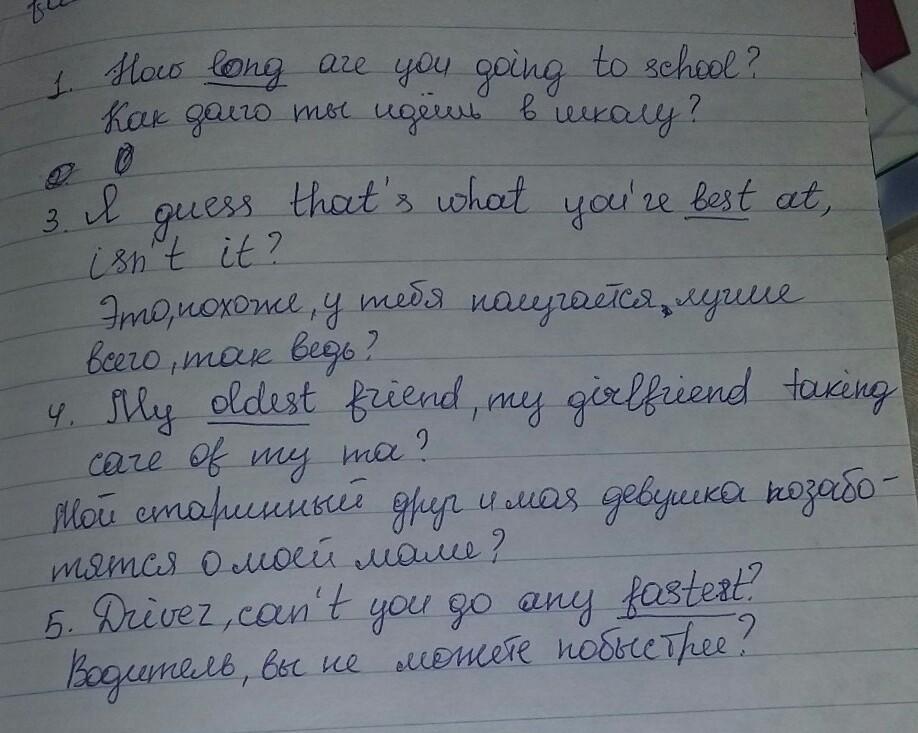 1. How long are you going to school?
Как долго ты идёшь в школу?
3. I guess that's what you're best at,
isn't it?
Это, похоже, у тебя получается, лучше
всего, так ведь?
4. My oldest friend, my girlfriend taking
care of my ma?
Мой старинный друг и моя девушка позабо-
тятся о моей маме?
5. Driver, can't you go any fastest?
Водитель, вы не можете побыстрее?